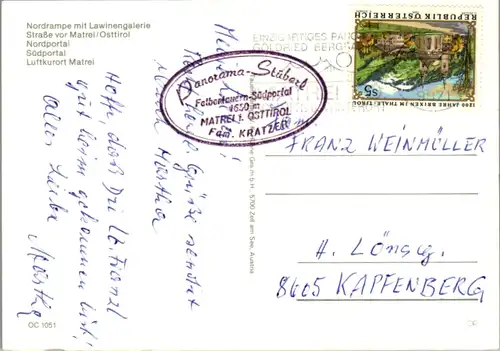 Nordrampe mit Lawinengalerie
Straße vor Matrei/Osttirol
Nordportal
Südportal
Luftkurort Matrei
EINZIGARTIGES PAN
GOLDRIED BERGB
REPUBLIK ÖSTERREICH
S5
1200 JAHRE BRIXEN IM THALE · TIROL
Panorama-Stüberl
Felbertauern-Südportal
1650 m
MATREI i. OSTTIROL
Fam. KRATZER
Grüße sendet
Martha
Hoffe, daß Du
gut heim gekommen bist!
Alles Liebe
Martha
FRANZ WEINMÜLLER
H. Lönsg.
8605 KAPFENBERG
Ges.m.b.H. · 5700 Zell am See, Austria
OC 1051